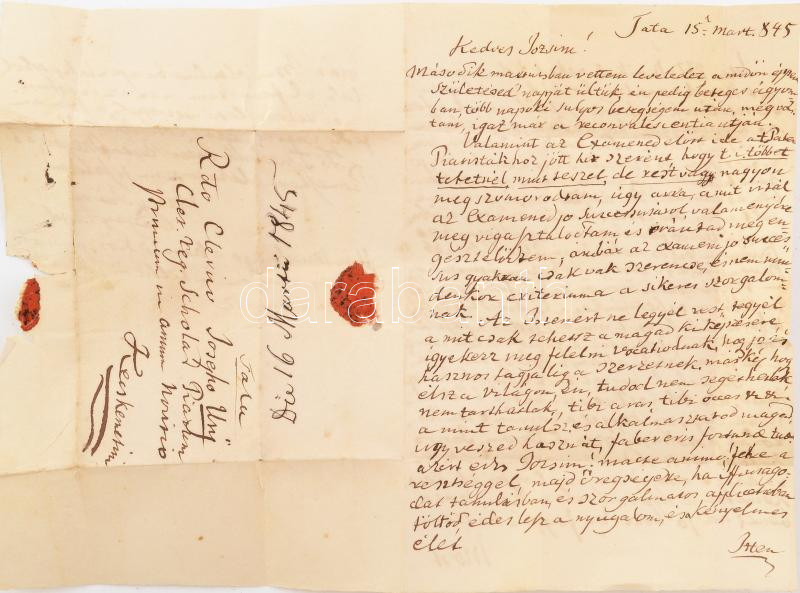 Tata 15ª Mart. 845
Kedves Jozsim!
Második martiusban vettem leveledet a midőn éppen
születésed' napját ültük, én pedig beteges ágyom
ban, több napoki sulyos betegségem után, meg vol
tam, igaz már a reconvalescentia utján.
Valamint az Examened előtt ide a Páter
Piaristákhoz jött hir szerént, hogy t i. többet
tehetnél, mint teszel, de rest vagy nagyon
meg szomorodtam, úgy arra, a mit irtál
az Examened jó successusárol, valamenyire
meg vigasztalodtam és irántad meg en-
gesztelődtem, ámbár az examen jó succes
sus gyakran csak vak szerencse, és nem min
denkor criteriuma a sikeres szorgalom-
nak. Az Istenért ne legyél rest, tegyél
a mit csak tehetsz a magad ki képzésére
igyekezz meg felelni vocatiodnak, hogy jó és
hasznos tagja légy a szerzetnek, máskép hogy
élsz a világon, én, tudod nem segéthetlek
nem tarthatlak, tibi aras, tibi occas
a mint tanulsz, és alkalmaztatod magad
úgy veszed hasznát, faber est fortunae suae
azért édes Jozsim! macte animo! félre a
restséggel, majd öregségedre, ha ifjuságo
dat tanulásban, és szorgalmatos applicatioban
töltöd, édes lesz a nyugalom, és a kényelmes
élet
Isten
Tata
Rdo Clerico Josepho Unÿ
Cler. Reg. Schola Piarum
Primum in annum Novicio
Kecskemétini
16 Martii 1845
darabanth